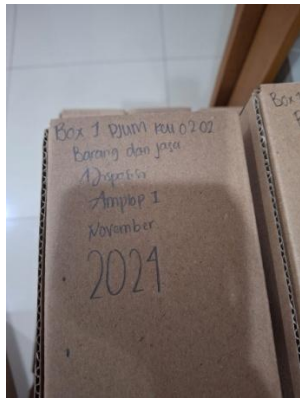 Box 1 PJUM KEU 02.02
Barang dan jasa
1 Disposisi
Amplop I
November
2021
Box